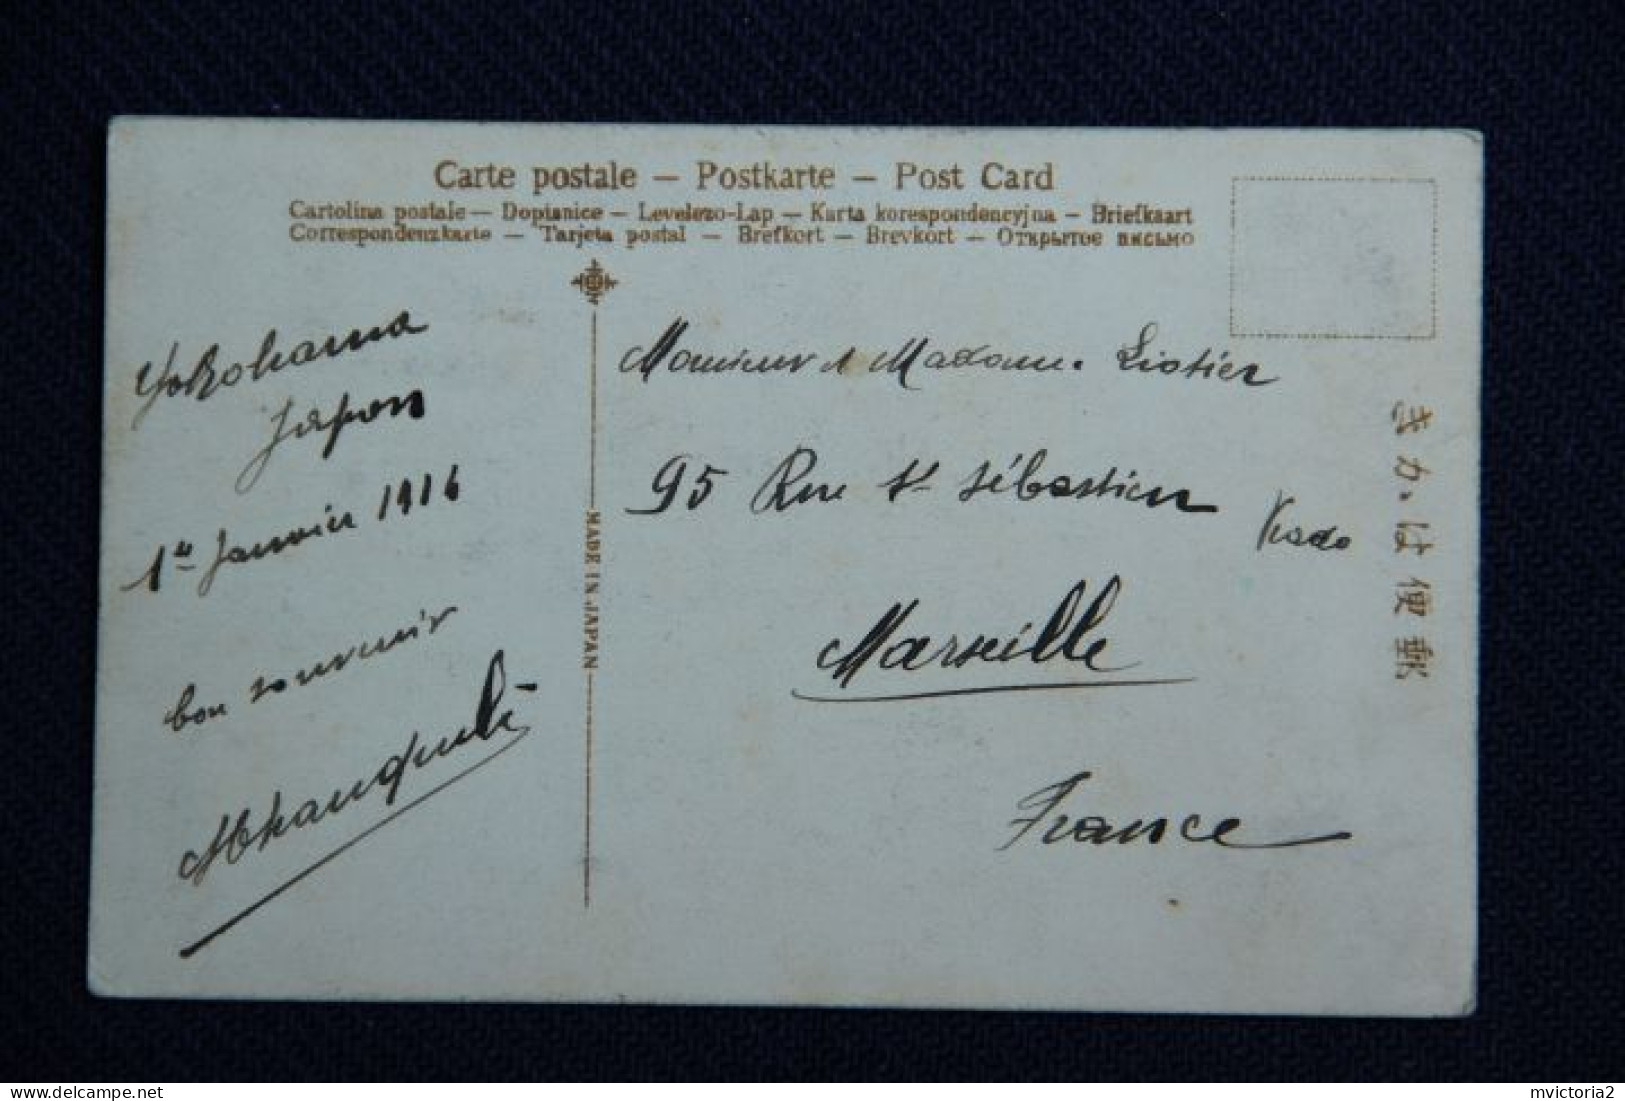 Carte postale — Postkarte — Post Card
Cartolina postale — Dopisnice — Levelezo-Lap — Karta korespondencyjna — Briefkaart
Correspondenzkarte — Tarjeta postal — Brefkort — Brevkort — Открытое письмо
Yokohama
Japon
1er Janvier 1916
bon souvenir
MADE IN JAPAN
Monsieur & Madame Liotier
95 Rue St Sébastien
Marseille
France
郵便はかき
mvictoria2